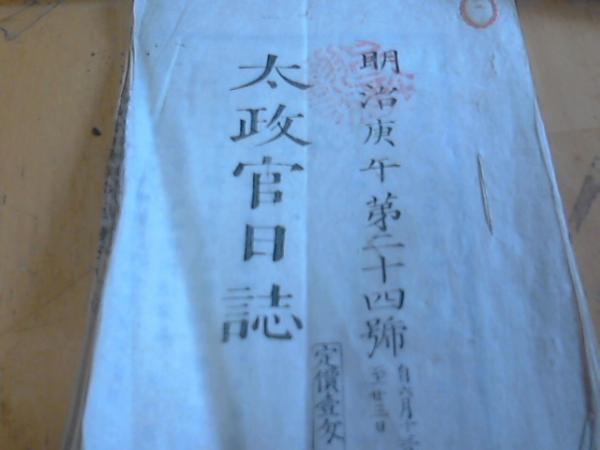 明治庚午第二十四號
自六月十三
至廿三日
太政官日誌
定價壹匁